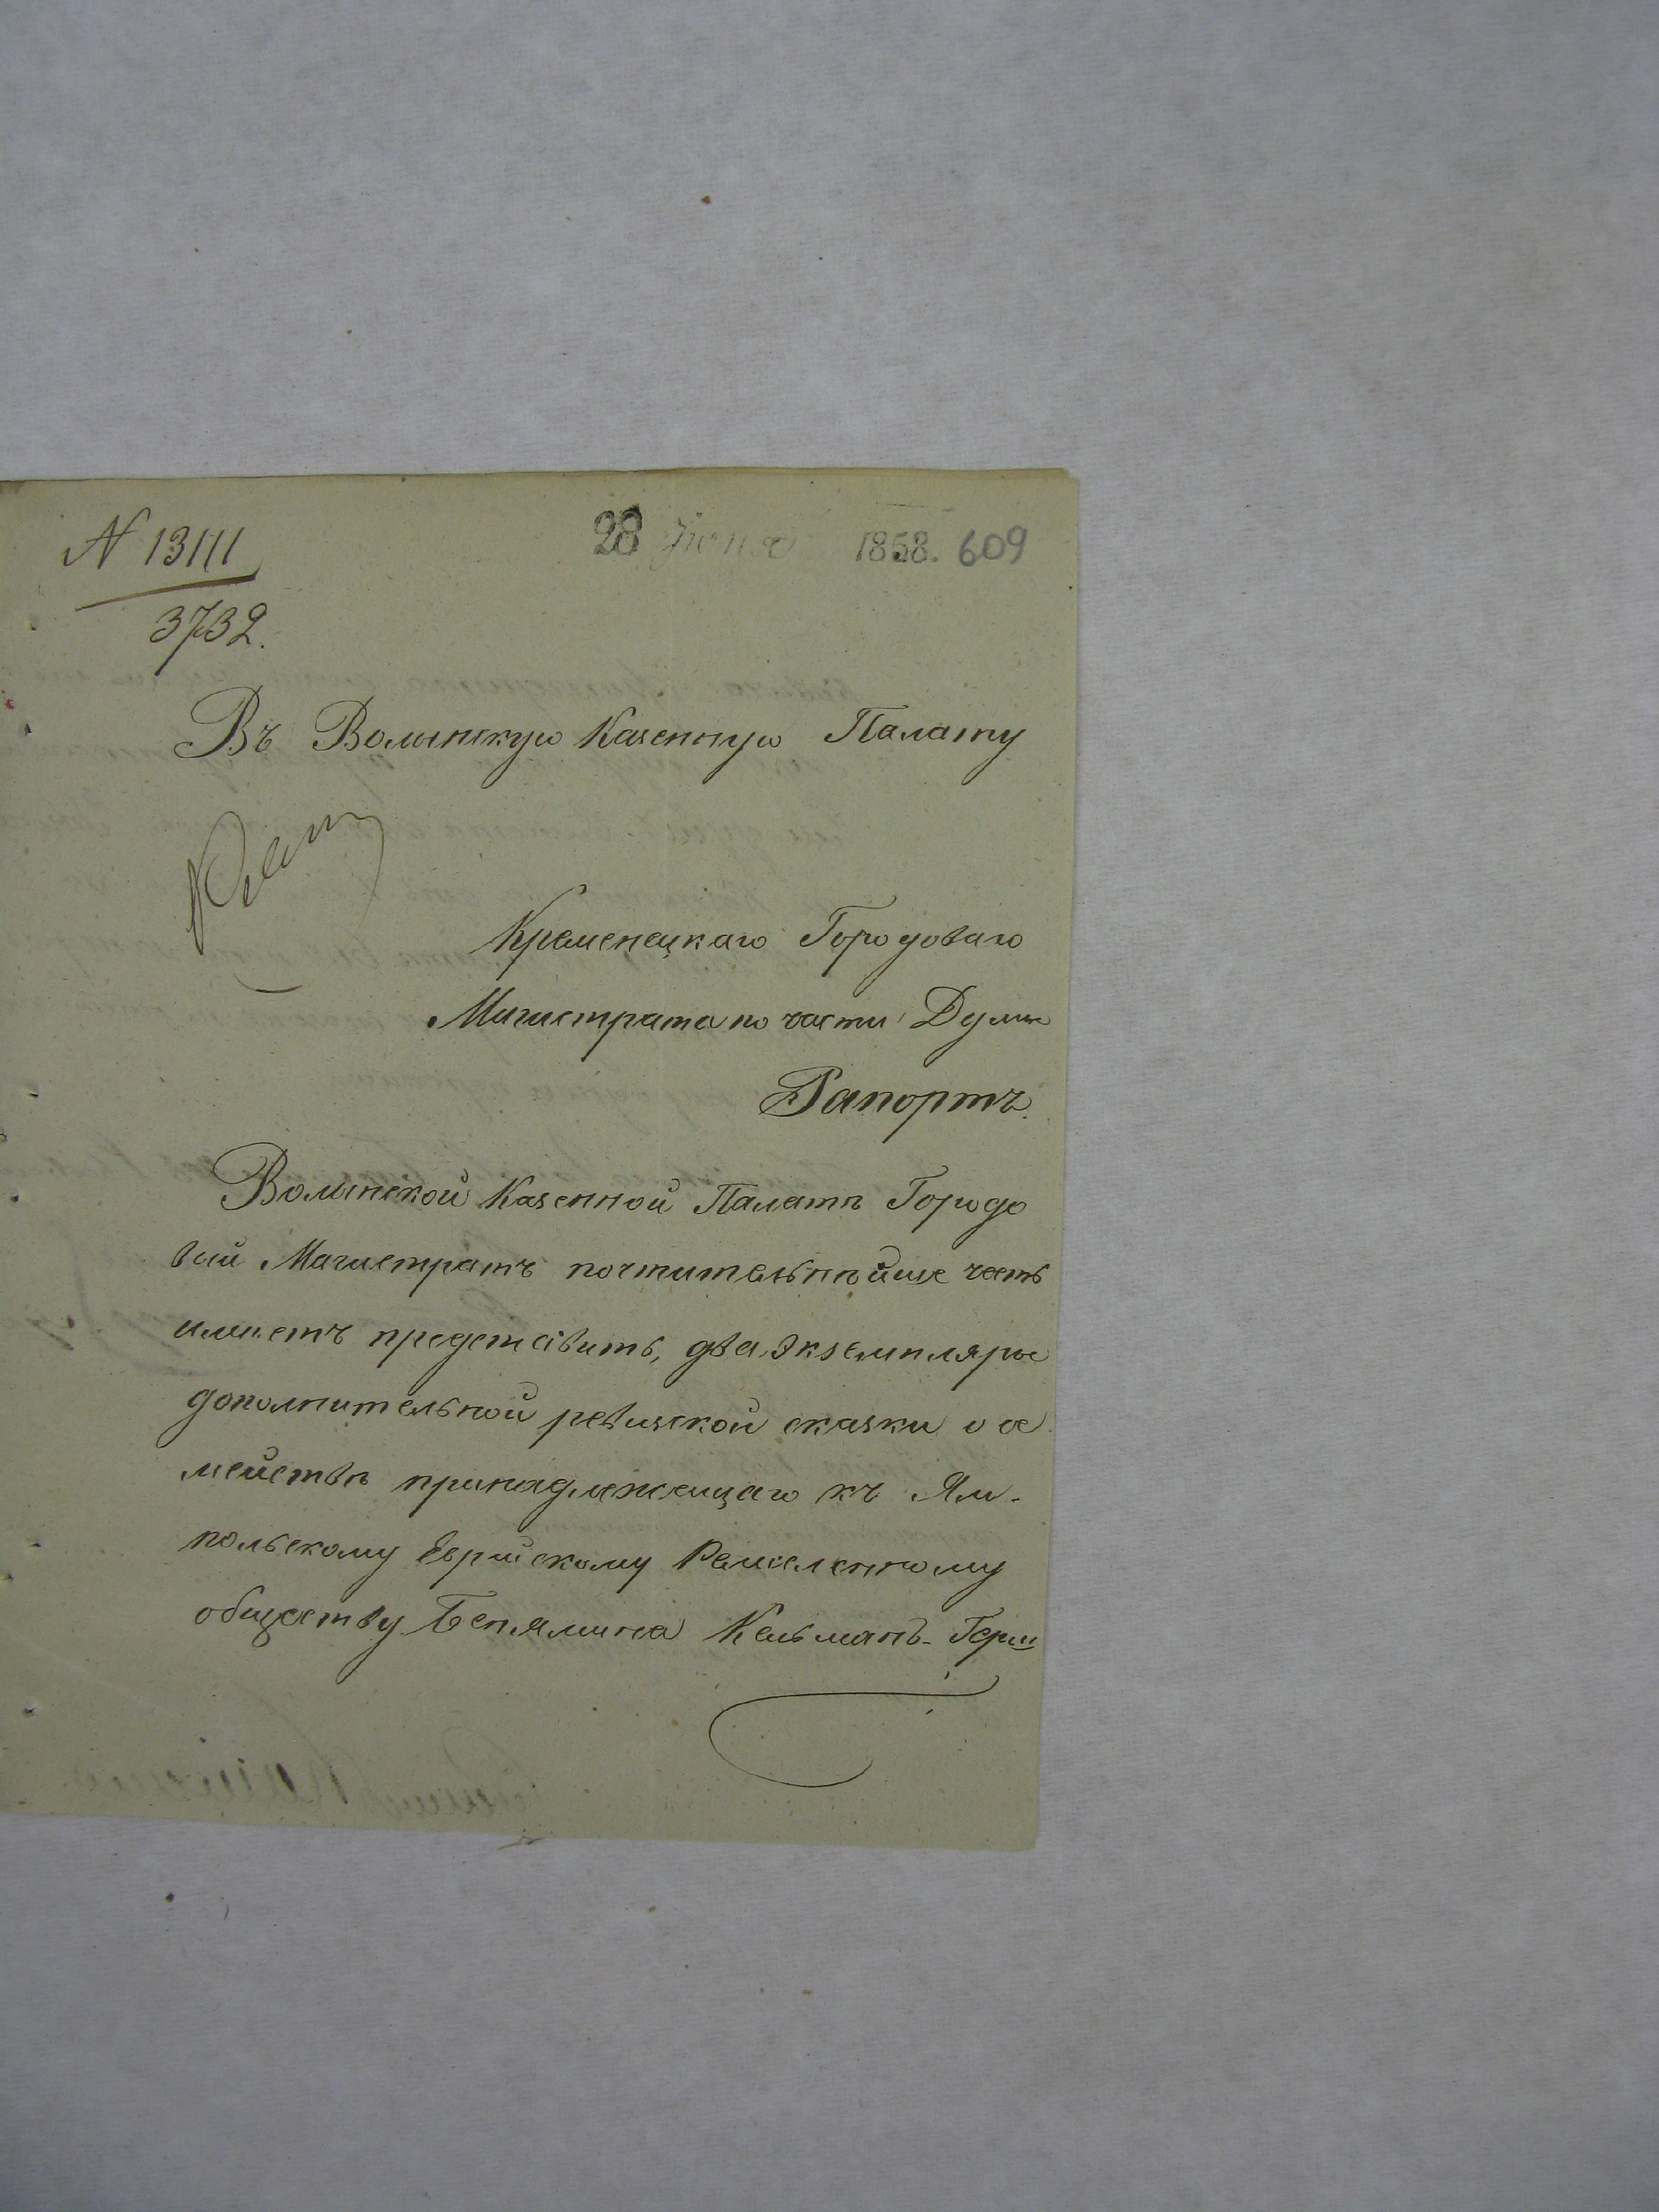 N 13111
3732.
28 Июня 1858. 609
Въ Волынскую Казенную Палату
Кременецкаго Городоваго
Магистрата по части Думы
Рапортъ.
Волынской Казенной Палатѣ Городо
вый Магистратъ почтительнѣйше честь
имѣетъ представить, два экземпляры
дополнительной ревизской сказки о се
мействѣ принадлежащаго къ Ям-
польскому Еврейскому Ремесленному
обществу Бенямина Кельманъ-Герш